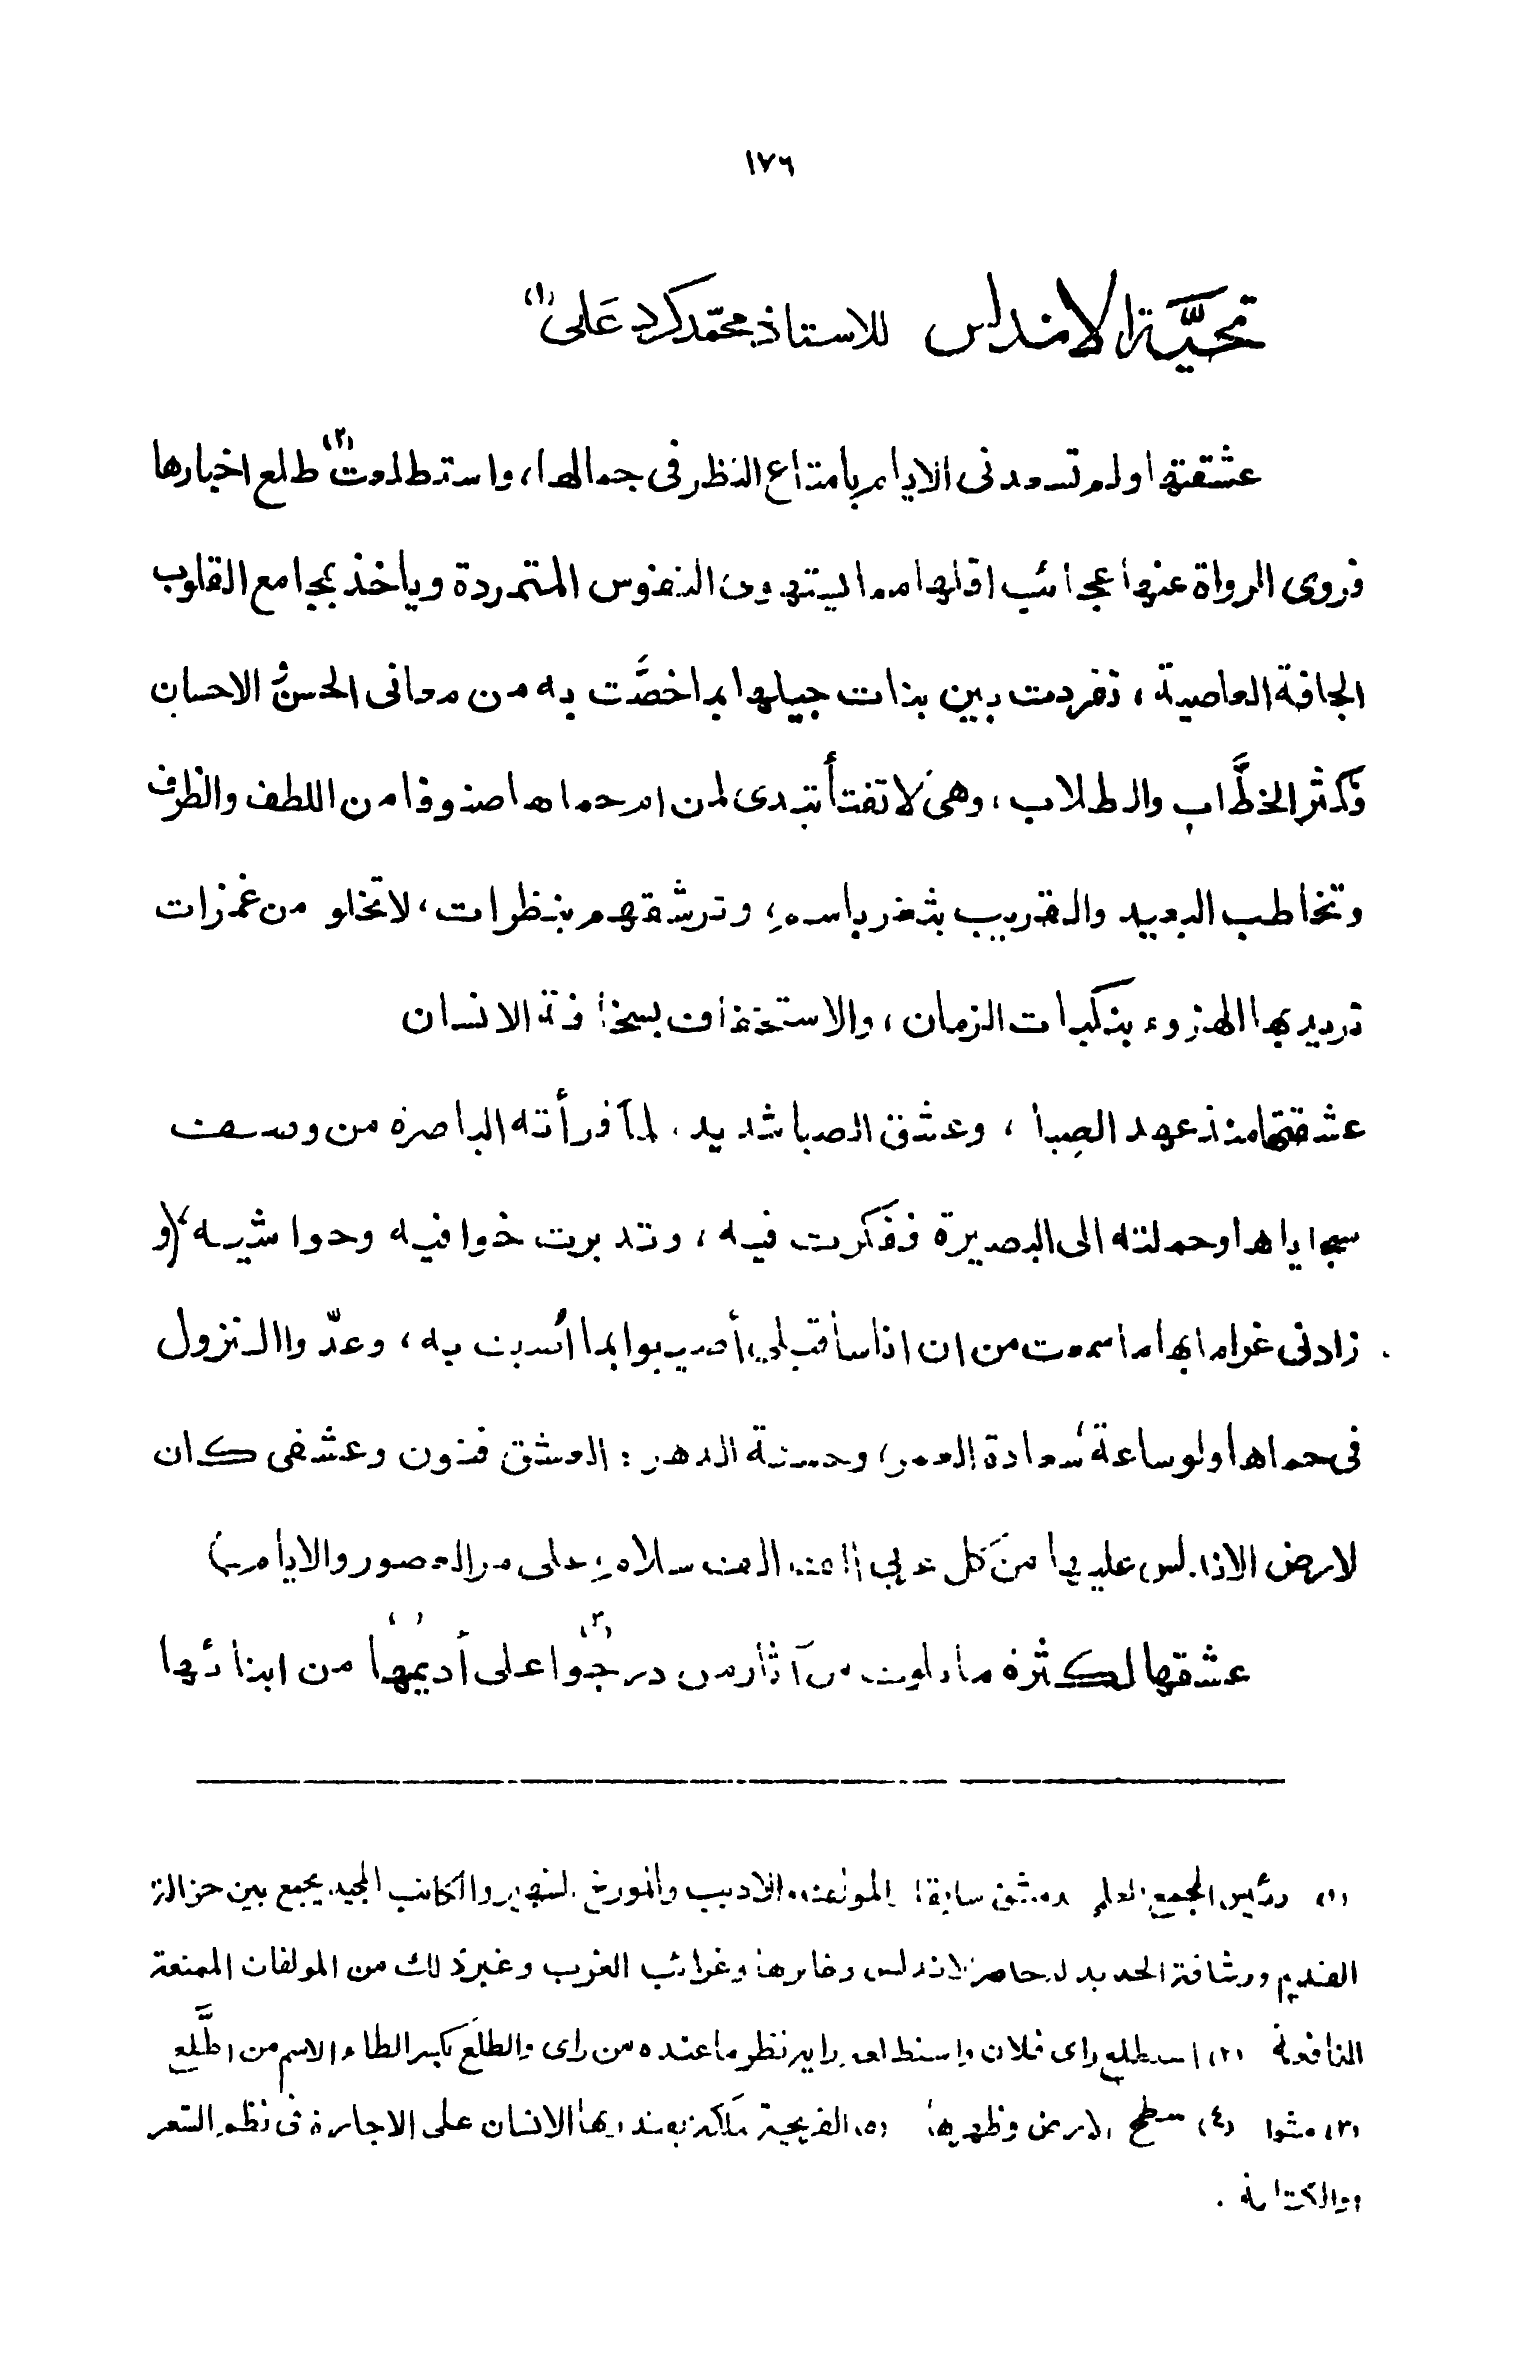 ١٧٦
تحيَّة الاندلس للاستاذ محمّد كرد عَلى (١)
عشقتها ولم تسعدنى الايام بإمتاع النظر فى جمالها، واستطلعت (٢) طلع اخبارها
فروى الرواة عنها عجائب اقلها مما يستهوى النفوس المتمردة وياخذ بمجامع القلوب
الجافة العاصية، تفردت بين بنات جيلها بما خصَّت به من معانى الحسن و الاحسان
فكثر الخطَّاب والطلاب، وهى لا تفتأ تبدى لمن ام حماها صنوفا من اللطف والظرف
وتخاطب البعيد والقريب بثغر باسم، وترشقهم بنظرات، لا تخلو من غمزات
تريد بها الهزوء بنكبات الزمان، والاستخفاف بسخافة الانسان
عشقتها منذ عهد الصِبا، وعشق الصبا شديد، لما قرأته الباصرة من وصف
سجاياها وحملته الى البصيرة ففكرت فيه، وتدبرت خوافيه وحواشيه، و
زادنى غراما بها ما سمعت من ان اناسا قبلى أصيبوا بما أُصبت به، وعدّوا النزول
فى حماها ولو ساعة سعادة العمر، وحسنة الدهر: العشق فنون وعشقى كان
لارض الاندلس عليها من كل عربى الف الف سلام على مر العصور والايام
عشقها لكثرة ما تلوت من آثار من درجوا (٣) على أديمها من ابنائها
(١) رئيس المجمع العلمى بدمشق سابقا المؤلف الاديب والمورخ الشهير والكاتب المجيد يجمع بين جزالة
القديم ورشاقة الحديد له حاضر الاندلس وغابرها وغرائب الغرب وغير ذلك من المولفات الممتعة
النافعة (٢) استطلع راى فلان واستطلعه رايه نظر ما عنده من راى والطلع بكسر الطاء الاسم من اطَّلع
(٣) مشوا (٤) سطح الارض وظهرها (٥) القريحة ملكة يقتدر بها الانسان على الاجادة فى نظم الشعر
والكتابة .